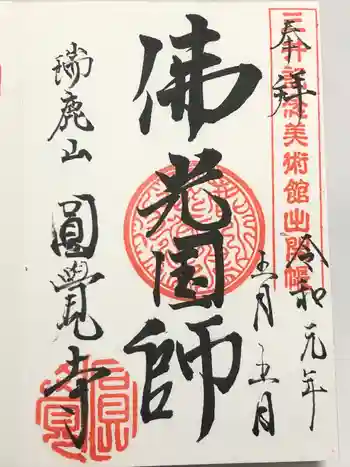 奉拝
三井記念美術館出開帳
令和元年
五月五日
佛光国師
瑞鹿山
圓覺寺
圓覺